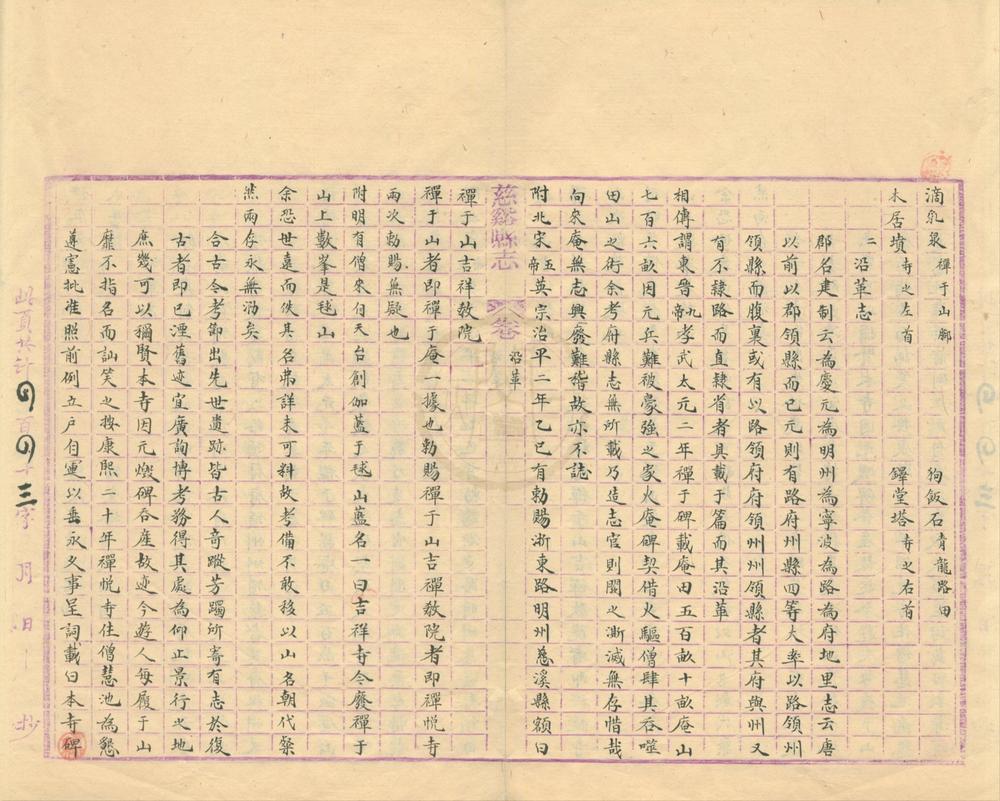 滴乳泉 禪于山鄉 狗飯石 青龍路田
木居墳 寺之左首 鐸堂塔 寺之右首
二沿革志
郡名建制云為慶元為明州為寧波為路為府地里志云唐
以前以郡領縣而已元則有路府州縣四等大率以路領州
領縣而腹裏或有以路領府府領州州領縣者其府與州又
有不隸路而直隸省者具載于篇而其沿革
相傳謂東晉九帝孝武太元二年禪于碑載庵田五百畝十畝庵山
七百六畝因元兵難被豪強之家火庵碑契借火驅僧肆其吞噬
田山之術余考府縣志無所載乃造志官則闕之漸滅無存惜哉
向來庵無志興廢難稽故亦不誌
附北宋五帝英宗治平二年乙巳有勅賜浙東路明州慈溪縣額曰
慈谿縣志 卷 沿革
禪于山吉祥教院
禪于山者即禪于庵一據也勅賜禪于山吉禪教院者即禪悅寺
兩次勅賜無疑也
附明有僧來伯天台創伽藍于毬山藍名一曰吉祥寺今廢禪于
山上數峯是毬山
余恐世遠而佚其名弗詳未可料故考備不敢移以山名朝代粲
然兩存永無泐矣
合古今考鄉出先世遺跡皆古人奇蹤芳躅所寄有志於復
古者即已湮舊迹宜廣詢博考務得其處為仰止景行之地
庶幾可以獨賢本寺因元燬碑吞產故迹今遊人每履于山
靡不指名而訕笑之按康熙二十年禪悅寺住僧慧池為懇
遵憲批准照前例立戶自運以垂永久事呈詞載曰本寺碑
此頁共計四百四十三字 月 日 抄